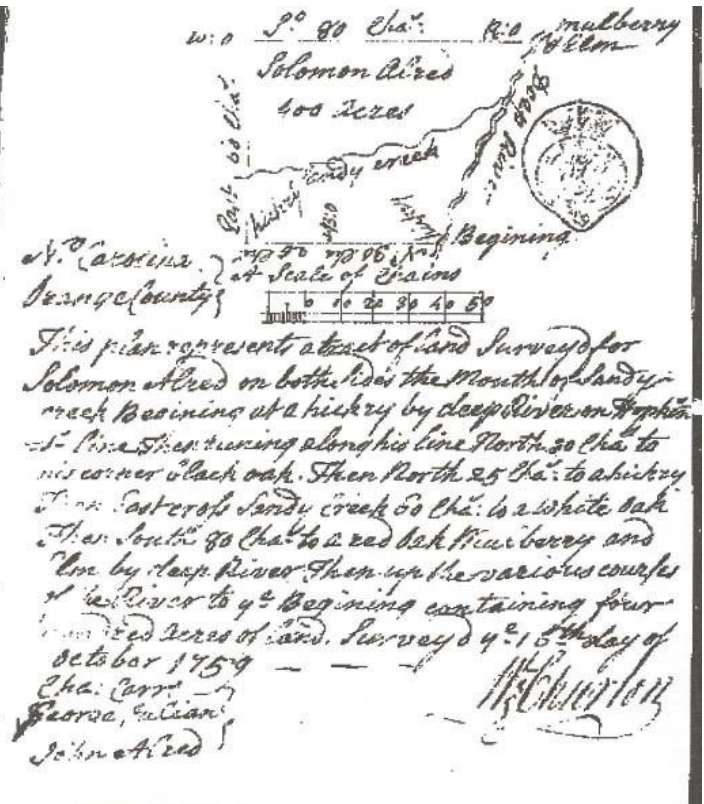 W:O So 80 Cha: R:O mulberry
& Elm
Solomon Alred
400 Acres
East 60 Cha:
Deep River
Sandy creek
hickry
B:O
hickry
Begining
No Carolina
Orange County
A Scale of Chains
10 20 30 40 50
This plan represents a tract of land Survey'd for
Solomon Alred on both sides the Mouth of Sandy
creek Begining at a hickry by deep River on Hopkin
line Then runing along his line North 30 Cha: to
his corner black oak. Then North 25 Cha: to a hickry
Then East cross Sandy Creek 60 Cha: to a white oak
Then South 80 Cha: to a red oak Mulberry and
Elm by deep River Then up the various courses
of the River to ye Begining containing four
hundred Acres of land. Survey'd ye 15th day of
October 1759
Cha: Carr
George Julian
John Alred